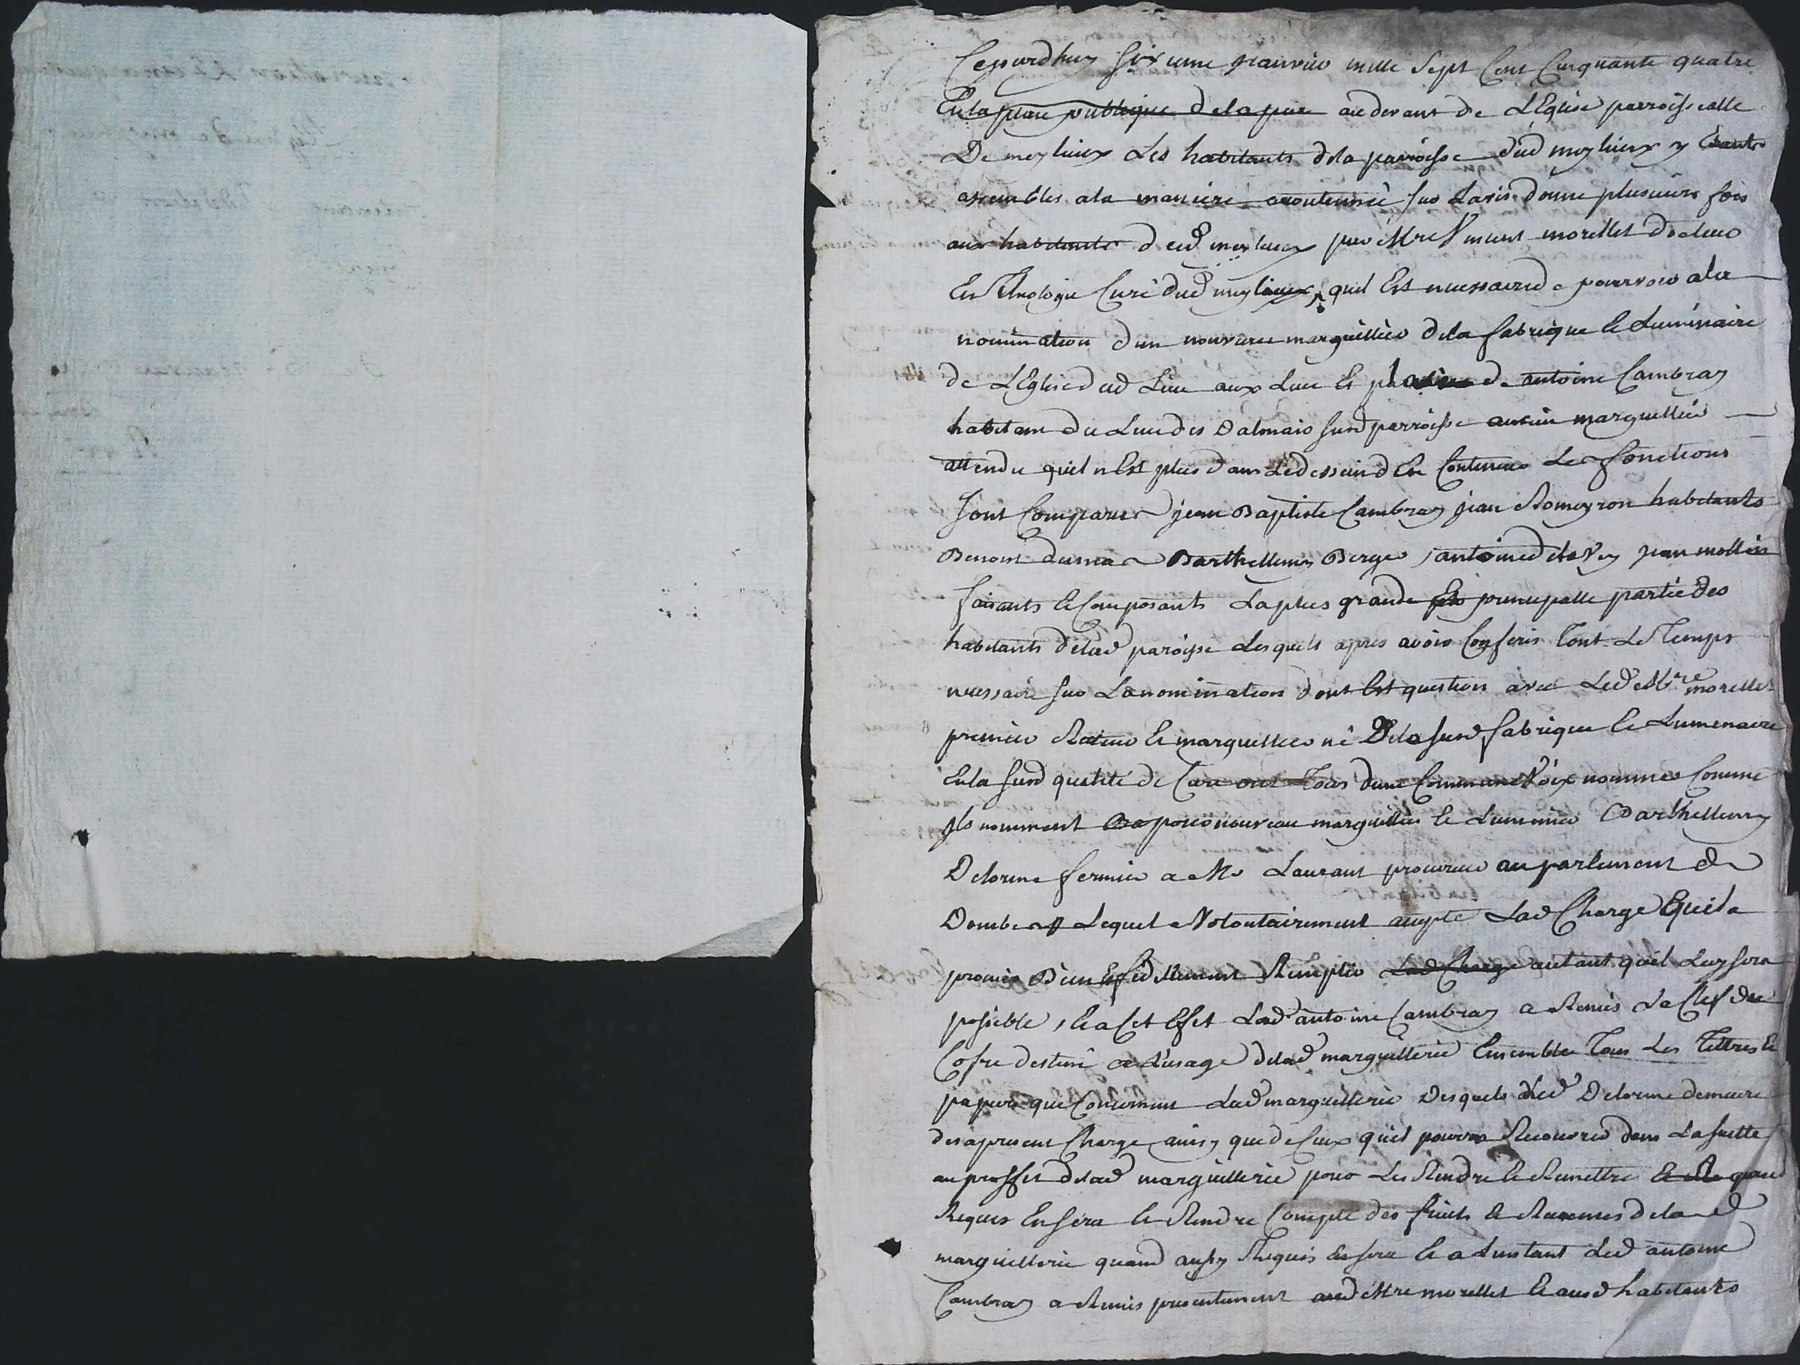 Cejourdhuy sixieme janvier mille sept cent cinquante quatre
En la place publique de la pce au devant de L'Eglise parroissialle
De meylieux Les habitants dela paroisse dud meylieux y Etants
assembles ala maniere accoutumée sur Lavis donne plusieurs fois
aux habitants dud meylieux par Mre Vincent morellet docteur
En Theologie Curé dud meylieux, quil Est necessaire de pourvoir ala
nomination dun nouveau marguillier dela fabrique & Luminaire
de L'Eglise dud Lieu aux Lieu Et place de antoine Cambray
habitant du Lieu des Dalmais susd parroisse ancien marguillier
attendu quil nEst plus dans Ledessein dEn Continuer Les fonctions
sont Comparus jean Baptiste Cambray jean Romeyron habitants
Benoist dumas Barthellemy Berger antoine delavey jean mollin
faisants & Composants La plus grande & principalle partie des
habitants delad paroisse Lesquels apres avoir Conferés tout Le Temps
necessaire sur La nomination dont Est question avec Led Mre morellet
premier Recteur & marguillier né Dela susd fabrique & Lumenaire
En la susd qualité de Curé ont Tous dune Commune Voix nommes Comme
jls nomment pour nouveau marguillier & Luminier Barthellemy
Delorme fermier a Mr Laurant procureur au parlement de
Dombes Lequel Volontairement accepte Lad Charge Equila
promis Bien & fidellement Remplir Lad Charge autant quil Luy sera
possible, & a Cet Effet Led antoine Cambray a Remis La Clef du
Cofre destiné a L'usage delad marguillerie Ensemble Tous Les Tittres &
papiers que Concernent Lad marguillerie Desquels Led Delorme demeure
desapresent Chargé ainsy que de Ceux quil pourra Recouvrer dans La suitte
au proffit delad marguillerie pour Les Rendre & Remettre quand
Requis En sera & Rendre Compte des fruits & Revenus delad
marguillerie quand ausy Requis En sera & a Linstant Led antoine
Cambray a Remis presentement aud Mre morellet & aux d habitants